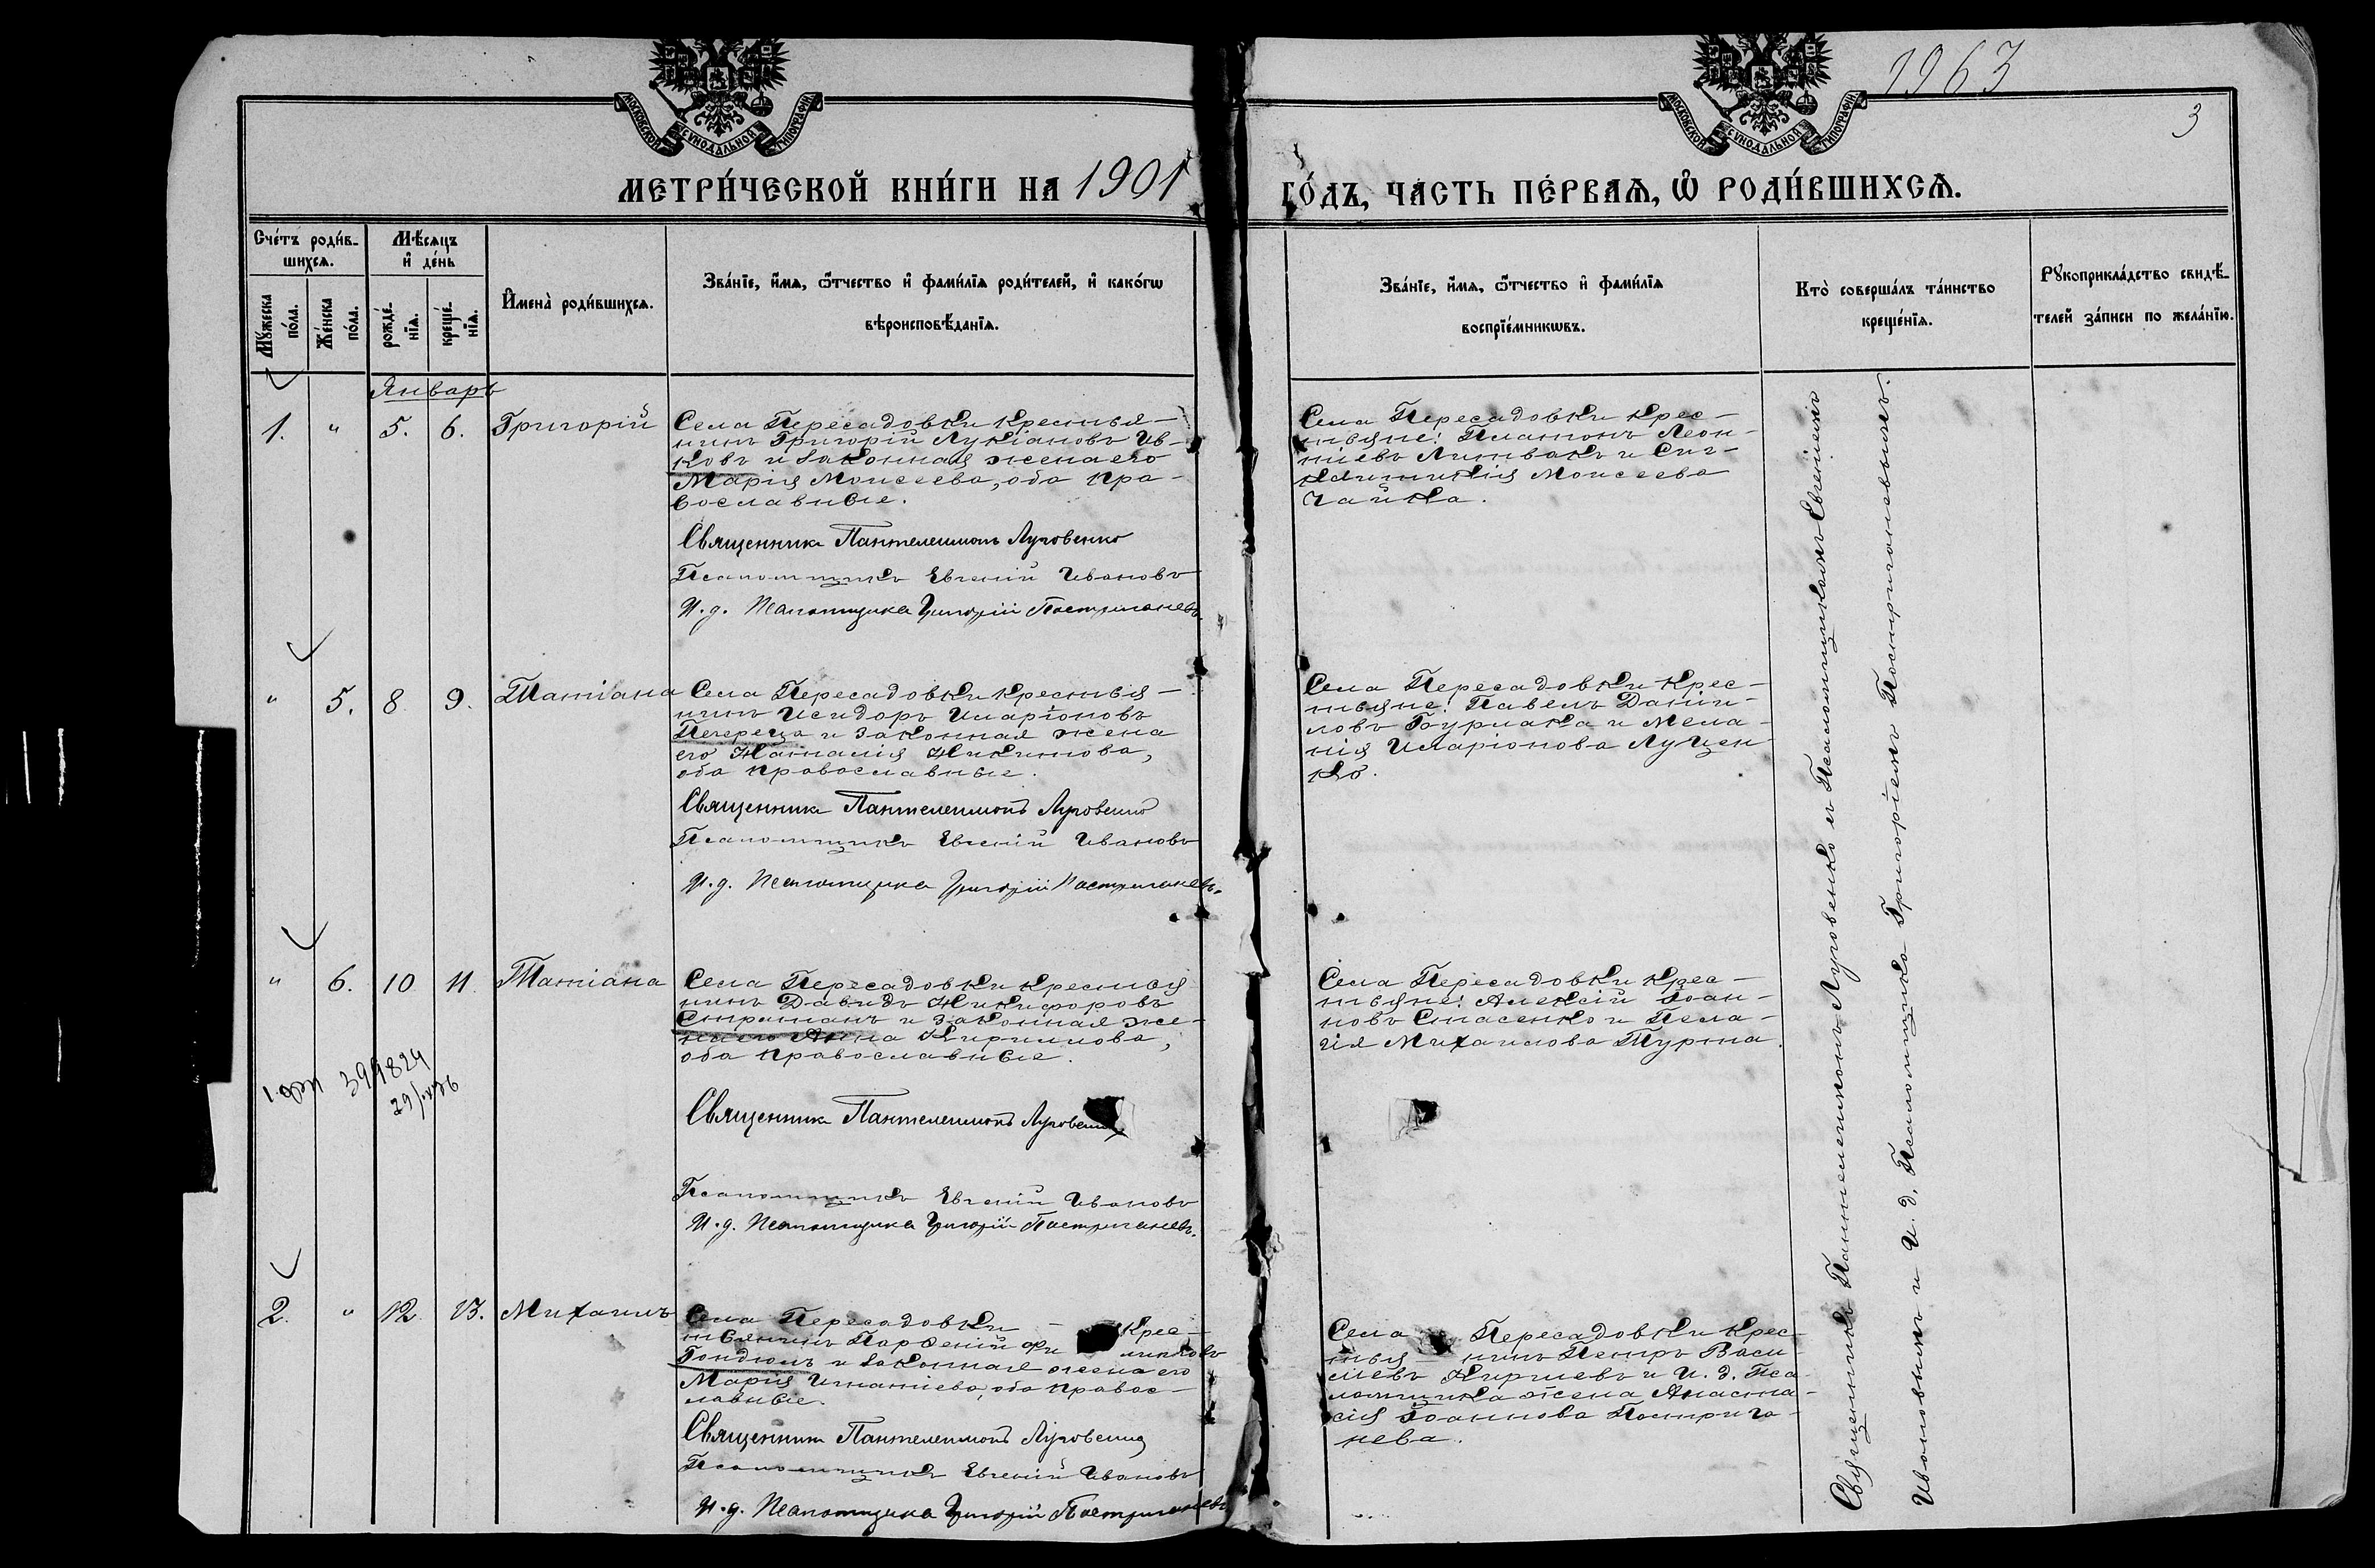 МОСКОВСКОЙ СУНОДАЛЬНОЙ ТИПОГРАФІИ
МОСКОВСКОЙ СУНОДАЛЬНОЙ ТИПОГРАФІИ
1963
3
МЕТРИ́ЧЕСКОЙ КНИ́ГИ НА 1901 ГО́ДЪ, ЧА́СТЬ ПЕ́РВАѦ, Ѡ РОДИ́ВШИХСѦ.
Сче́тъ роди́в-
шихсѧ.
Мꙋ́жеска
по́ла.
Же́нска
по́ла.
Мѣ́сѧцъ
и҆ де́нь
рожде́-
нїѧ.
креще́-
нїѧ.
И҆мена̀ роди́вшихсѧ.
Зва́нїе, и҆́мѧ, ѻ҆́тчество и҆ фами́лїѧ роди́телей, и҆ како́гѡ
вѣроисповѣ́данїѧ.
Зва́нїе, и҆́мѧ, ѻ҆́тчество и҆ фами́лїѧ
воспрїе́мникѡвъ.
Кто̀ соверша́лъ та́инство
креще́нїѧ.
Рꙋкоприкла́дство свидѣ́-
телей за́писи по жела́нїю.
Январь
1. " 5. 6. Григорій
Села Пересадовки крестья-
нинъ Григорій Лукіановъ Ив-
ковъ и законная жена его
Марія Моисеева, оба пра-
вославные.
Священникъ Пантелеимонъ Луговенко
Псаломщикъ Евгеній Ивановъ
И. д. Псаломщика Григорій Пострыганевъ.
Села Пересадовки крес-
тьяне: Платонъ Леон-
тіевъ Литвакъ и
Моисеева
Чайка.
" 5. 8 9. Татіана
Села Пересадовки крестья-
нинъ Исидоръ Иларіоновъ
Печереца и законная жена
его Наталія Никитова,
оба православные.
Священникъ Пантелеимонъ Луговенко
Псаломщикъ Евгеній Ивановъ
И. д. Псаломщика Григорій Пострыганевъ.
Села Пересадовки крес-
тьяне: Павелъ Даніи-
ловъ Бурлака и Мела-
нія Иларіонова Луцен-
ко.
" 6. 10 11. Татіана
Села Пересадовки крестья
нинъ Давидъ Никифоровъ
Стратанъ и законная же-
на его Анна Кириллова,
оба православные.
399824
Священникъ Пантелеимонъ Луговенко
Псаломщикъ Евгеній Ивановъ
И. д. Псаломщика Григорій Пострыганевъ.
Села Пересадовки крес-
тьяне: Алексій Іоан-
новъ Стасенко и Пела-
гія Михаилова Турта.
2. " 12. 13. Михаилъ
Села Пересадовки - Крес-
тьянинъ Парѳеній
Гондюлъ и законная жена его
Марія Игнатіева, оба правос-
лавные.
Священникъ Пантелеимонъ Луговенко
Псаломщикъ Евгеній Ивановъ
И. д. Псаломщика Григорій Пострыганевъ
Села Пересадовки крес-
тья - нинъ Петръ Васи-
лієвъ Киріевъ и И. д. Пса-
ломщика жена Анаста-
сія Іоаннова Пострыга-
нева.
Священникъ Пантелеимонъ Луговенко съ Псаломщикомъ Евгеніемъ
Ивановымъ и И. д. Псаломщика Григоріемъ Пострыганевымъ.